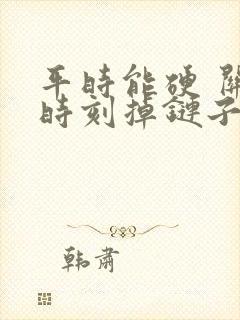 平時能硬 關
時刻掉鏈子
韩肅